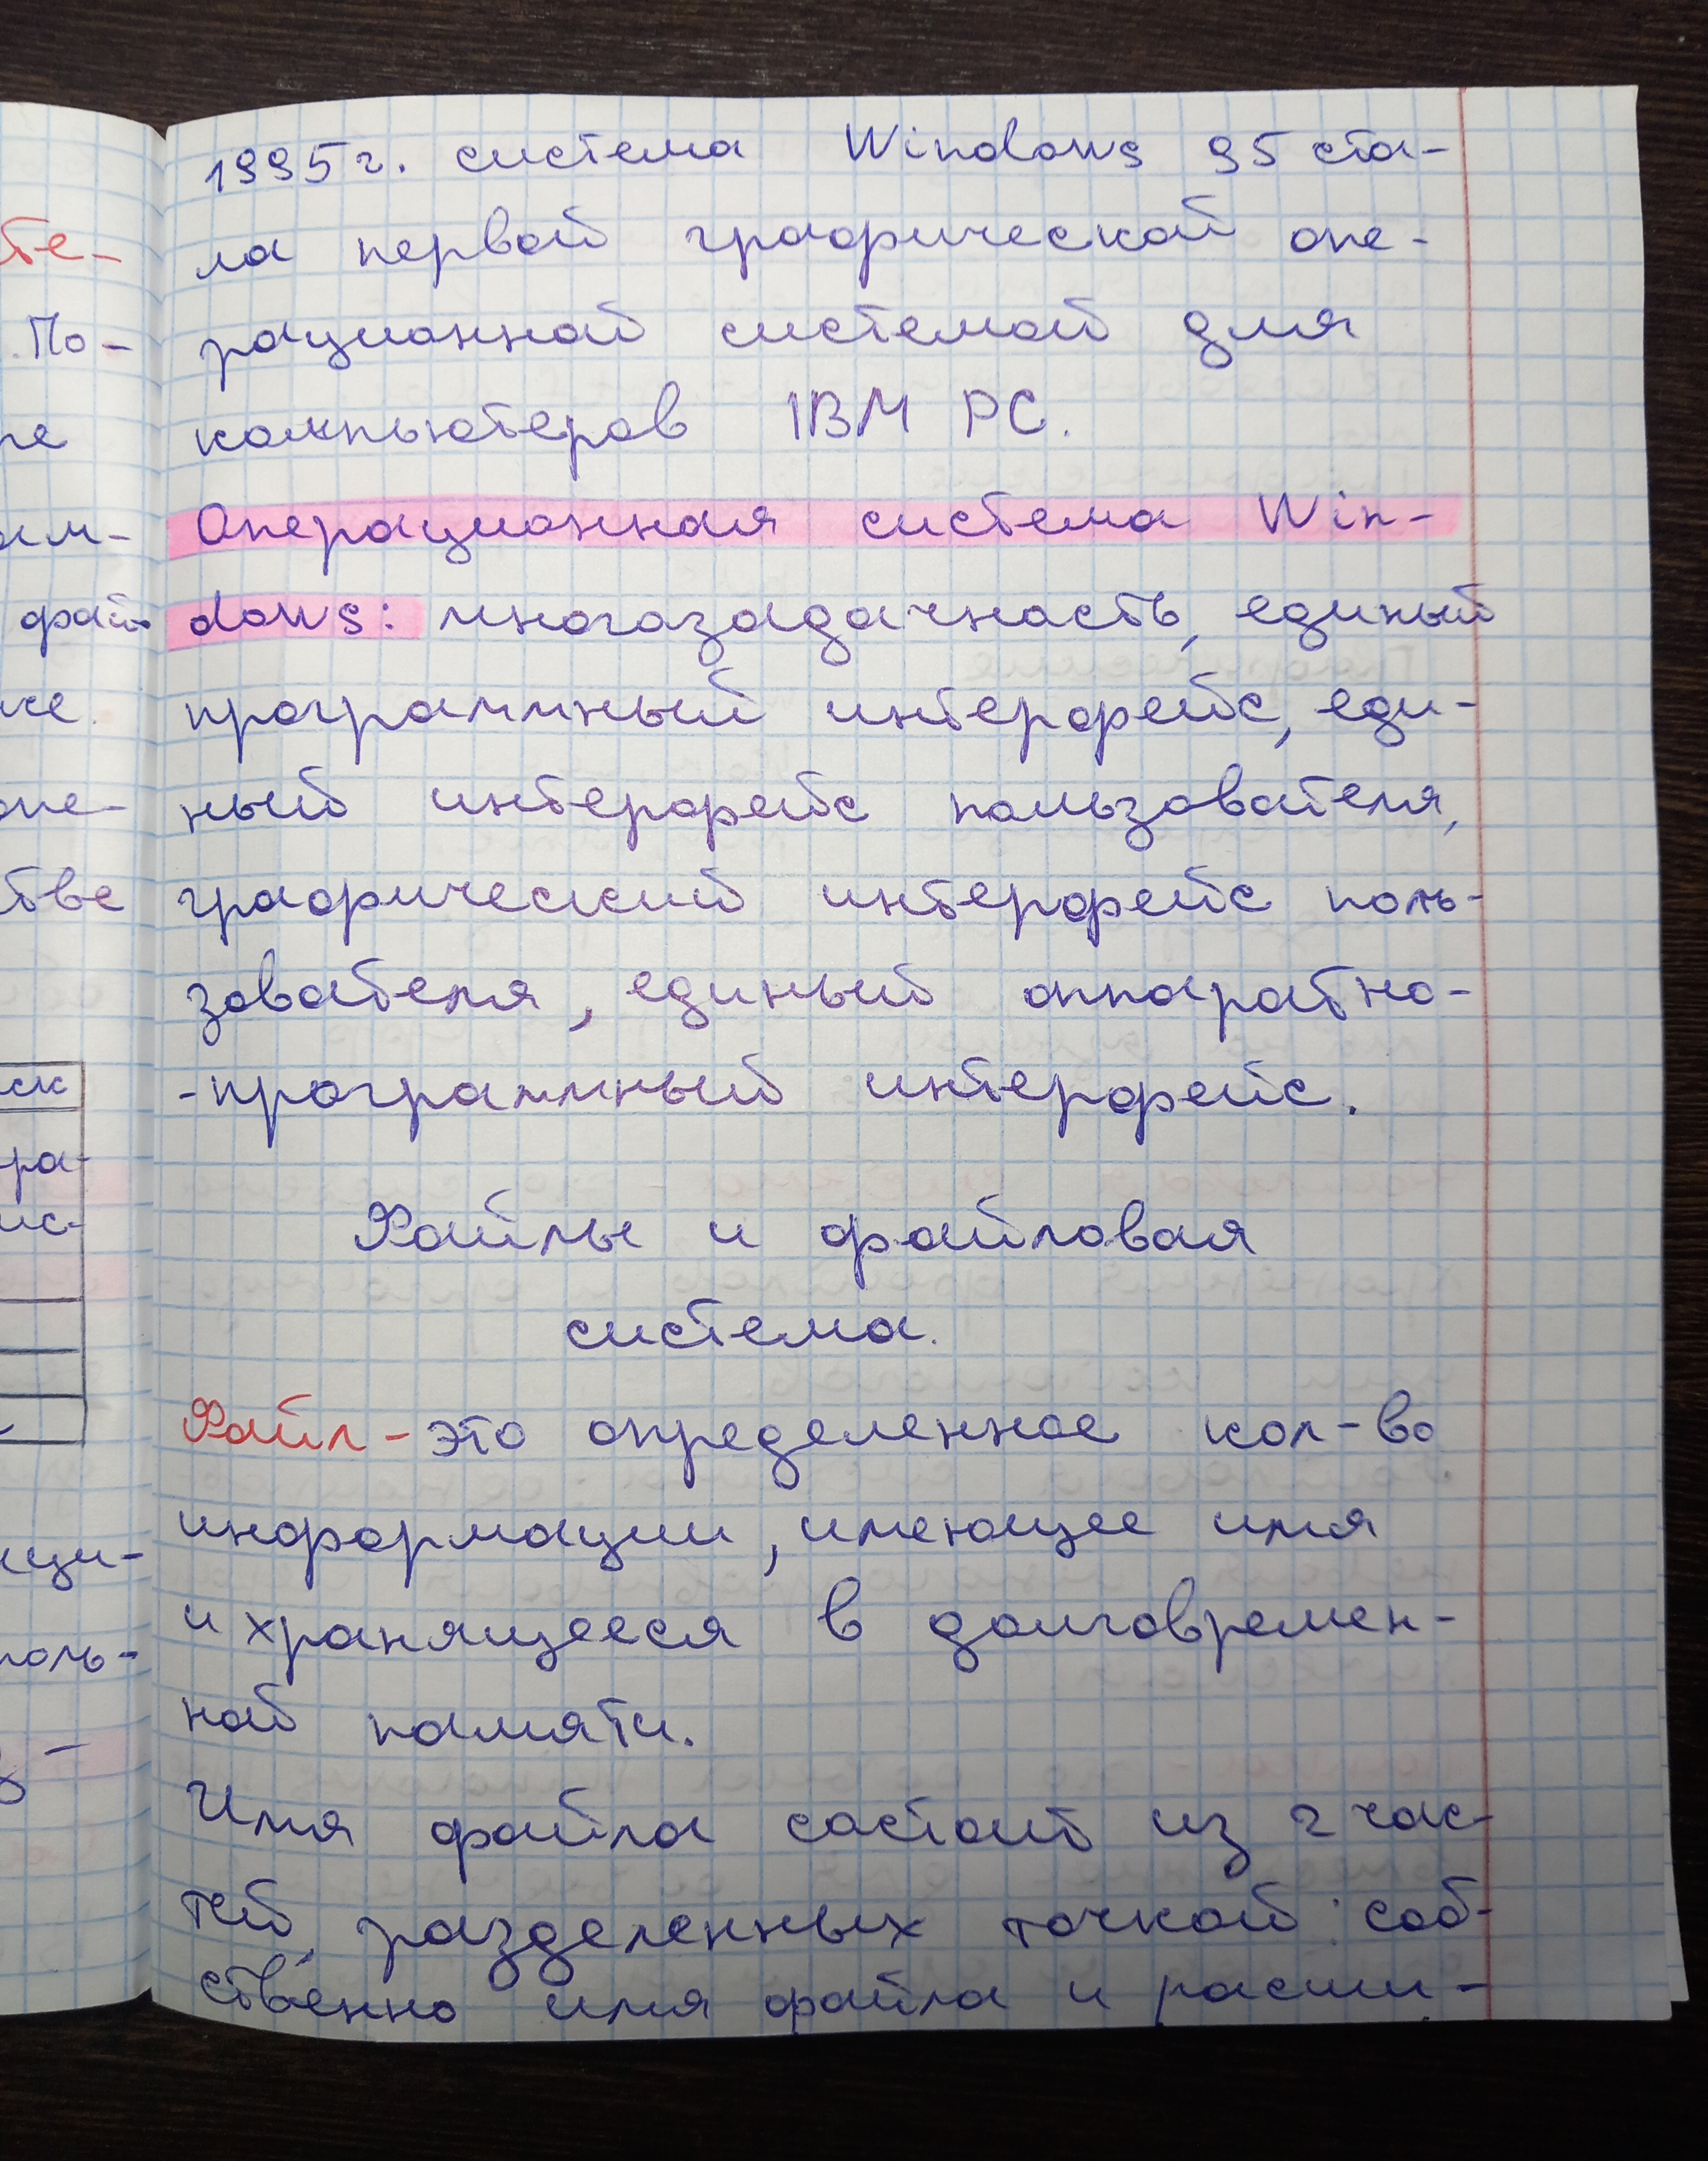 те-
. По-
ре
ам-
фай
же.
опе-
стве
ск
ра-
ис-
кци-
поль-
1995г. система Windows 95 ста-
ла первой графической опе-
рационной системой для
компьютеров IBM PC.
Операционная система Win-
dows: многозадачность, единый
программный интерфейс, еди-
ный интерфейс пользователя,
графический интерфейс поль-
зователя, единый аппаратно-
-программный интерфейс.
Файлы и файловая
система.
Файл - это определенное кол-во
информации, имеющее имя
и хранящееся в долговремен-
ной памяти.
Имя файла состоит из 2 час-
тей, разделенных точкой: соб-
ственно имя файла и расши-